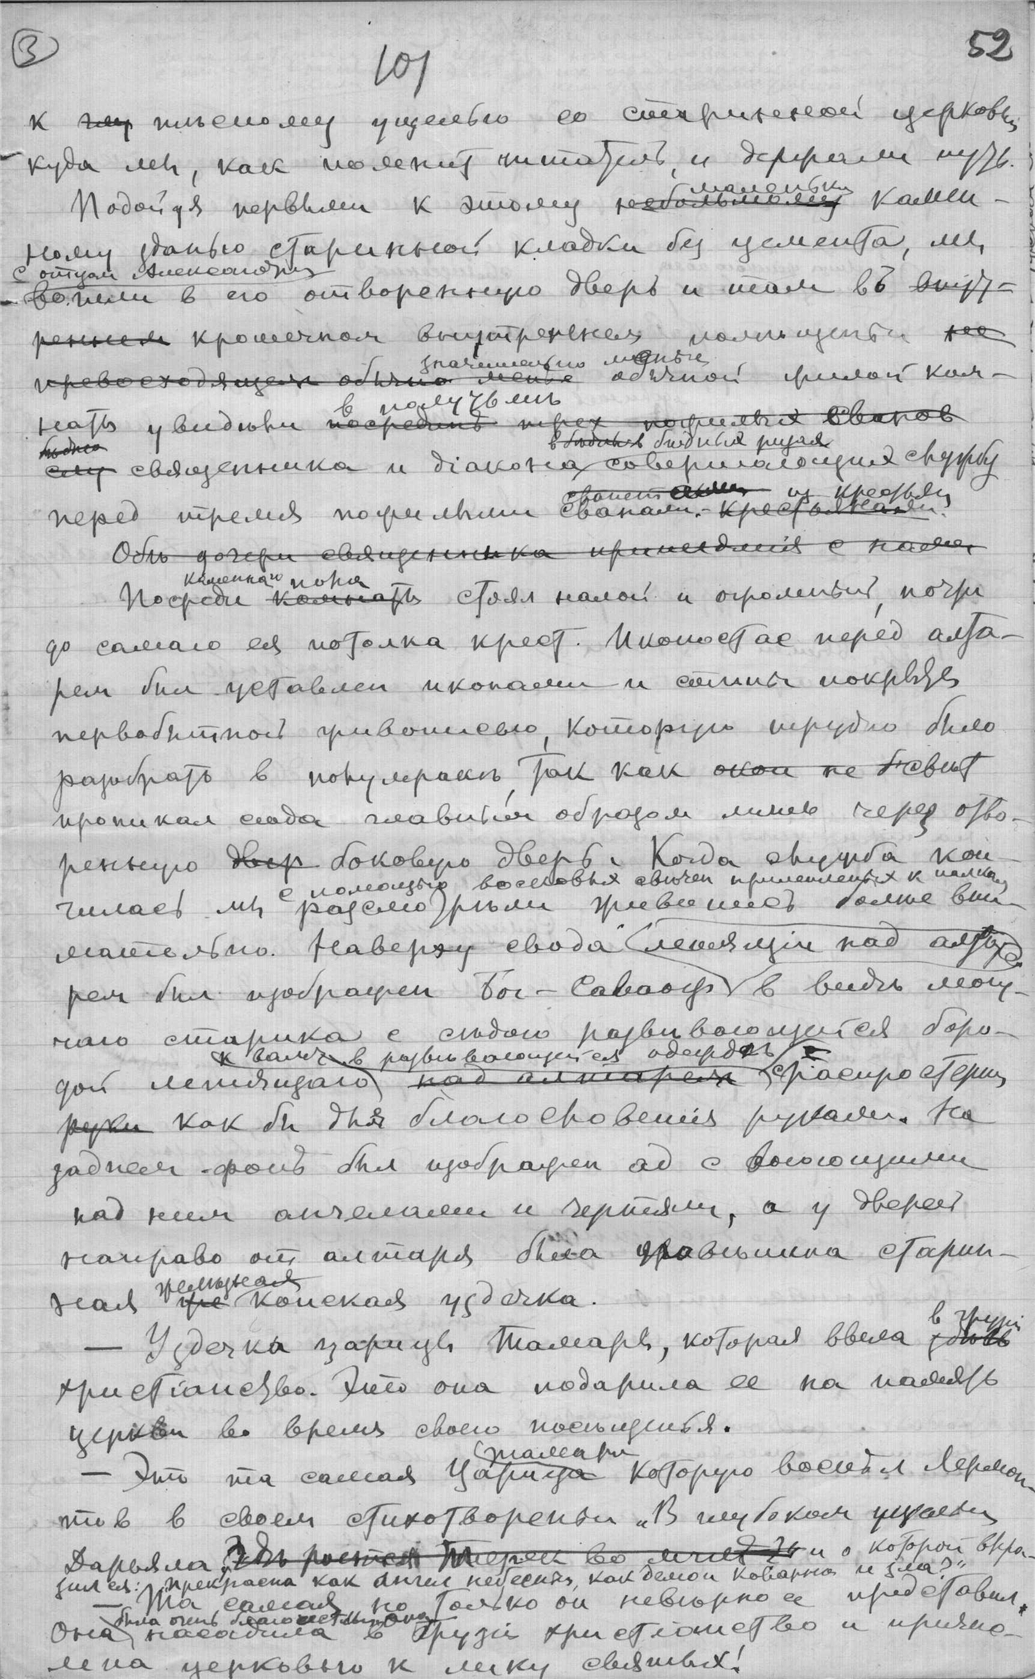 3
101
52
к лѣсному ущелью со старинной церковью
куда мы, как помнит читатель, и держали путь.
Подойдя первыми к этому небольшому маленькому камен-
ному зданью старинной кладки без цемента, мы
с отцом Александром
вошли в его отворенную дверь и там въ внут-
реннем крошечном внутреннем помещеньи не
превосходящем обычно менѣе значительно меньше обычной жилой ком-
наты увидѣли посрединѣ в полутьмѣ трех пожилых сванов
священника и діакона в бедных ризах совершающия службу
перед тремя пожилыми сванами из крестьян крестьянами.
Обѣ дочери священника пришедшія с нами
Посреди каменнаго пола комнаты стоял налой и огромный, почти
до самаго ея потолка крест. Иконостас перед алта-
рем был уставлен иконами и стѣны покрыты
первобытной живописью, которую трудно было
разобрать в полумракѣ, так как окон не свѣт
проникал сюда главным образом лишь через отво-
ренную двер боковую дверь. Когда служба кон-
с помощью восковых свѣчек прилепленных к палкам
чилась мы разсмотрѣли живопись болѣе вни-
мательно. Наверху свода летящим над алта-
рем был изображен Бог-Саваоф в видѣ могу-
чаго старика с сѣдою развивающейся боро-
дой летящаго к вам в развивающейся одеждѣ над алтарем с распростертыми
руки как бы для благословения руками. На
заднем фонѣ был изображен ад с воюющими
над ним ангелами и чертями, а у дверей
направо от алтаря была старин-
ная желѣзная же конская уздечка.
— Уздечка царицы Тамары, которая ввела в Грузіи здѣсь
христіанство. Это она подарила ее на память
церкви во время своего посѣщенья.
— Это та самая Царица Тамара которую воспѣл Лермон-
тов в своем стихотвореньи „В глубоком ущельи
Дарьяла, гдѣ роется Терек во мглѣ и о которой выра-
зился: „прекрасна как ангел небесный, как демон коварна и зла?“
— Та самая, но только он невѣрно ее представил.
Она была очень благочестива она насадила в Грузіи христіанство и причис-
лена церковью к лику святых!